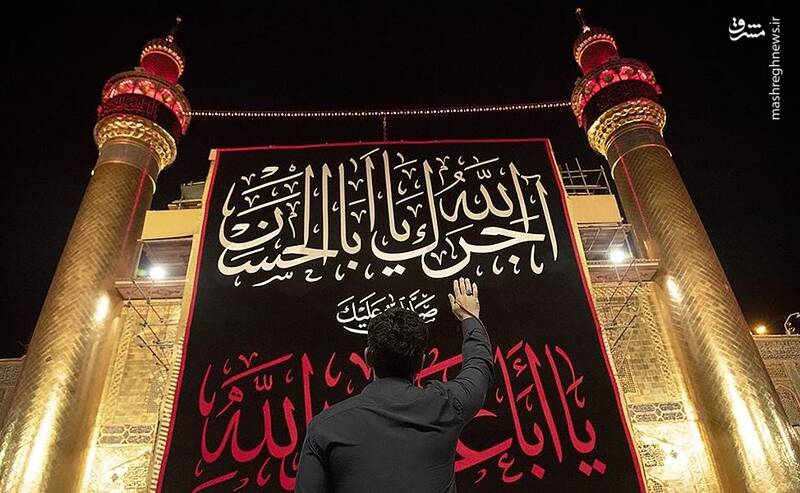 مشرق
mashreghnews.ir
آجرك الله يا أبا الحسن
صلى الله عليك
يا أبا عبد الله